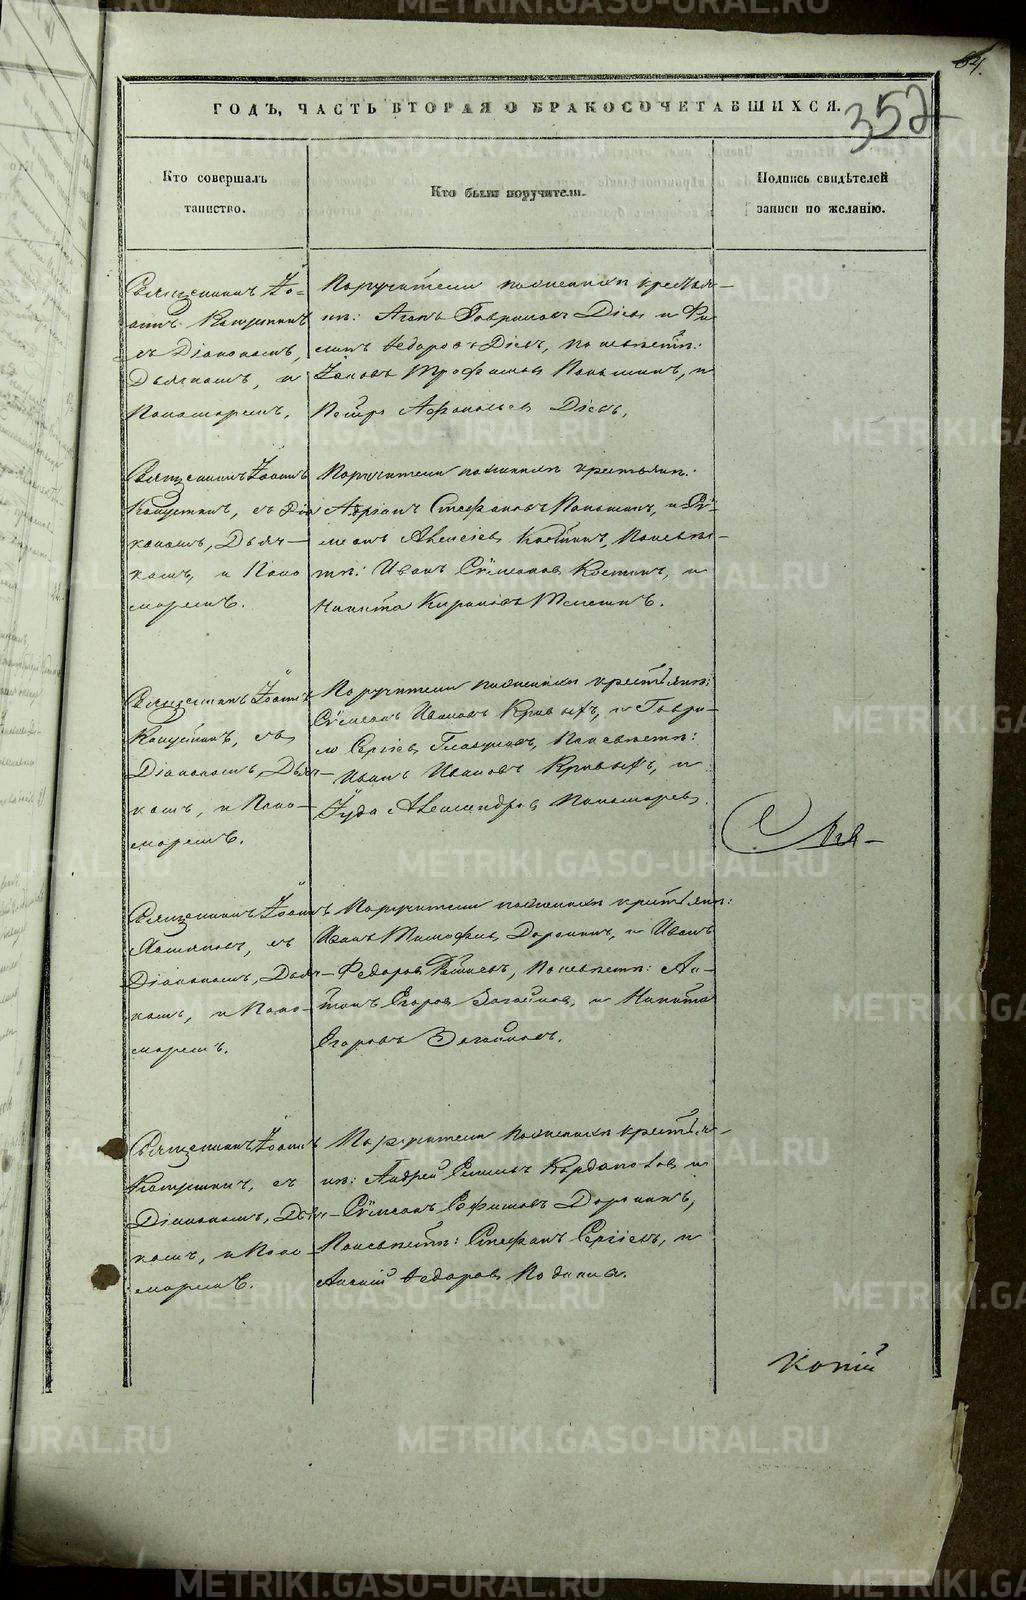 84.
352
ГОДЪ, ЧАСТЬ ВТОРАЯ О БРАКОСОЧЕТАВШИХСЯ.
Кто совершалъ
таинство.
Кто были поручители.
Подпись свидѣтелей
записи по желанію.
Священникъ Іо-
аннъ Капустинъ
съ Діакономъ,
Дьячкомъ, и
Пономаремъ.
Поручители по женихѣ крестья-
не: Гавриловъ Діевъ и Фи-
липъ Ѳедоровъ Діевъ, по невѣстѣ:
Іаковъ Трофимовъ Паньшинъ, и
Петръ Діевъ.
Священникъ Іоаннъ
Капустинъ, съ Діа
кономъ, Дьяч-
комъ, и Поно
маремъ.
Поручители по женихѣ крестьяне:
Адріанъ Стефановъ и Сѵ-
меонъ Алексіевъ Костинъ, по невѣс-
тѣ: Иванъ Сѵмеоновъ Костинъ, и
Никита
Священникъ Іоаннъ
Капустинъ, съ
Діакономъ, Дьяч-
комъ, и Поно-
маремъ.
Поручители по женихѣ крестьяне:
Сѵмеонъ Ивановъ Кривыхъ, и Гаври-
ло Сергіевъ по невѣстѣ:
Иванъ Ивановъ Кривыхъ, и
Іуда Александровъ Пономаревъ.
Священникъ Іоаннъ
съ
Діакономъ, Дьяч-
комъ, и Поно-
маремъ.
Поручители по женихѣ крестьяне:
Иванъ Тимофіевъ Доронинъ, и Иванъ
Федоровъ по невѣстѣ: Ан-
тонъ Егоровъ Загайновъ, и Никита
Егоровъ Загайновъ.
Священникъ Іоаннъ
Капустинъ, съ
Діакономъ, Дьяч-
комъ, и Поно-
маремъ.
Поручители по женихѣ крестья-
не: Андрей и
Сѵмеонъ Ефимовъ Доронинъ,
по невѣстѣ: Стефанъ Сергіевъ, и
Ѳедоровъ
Копій
METRIKI.GASO-URAL.RU